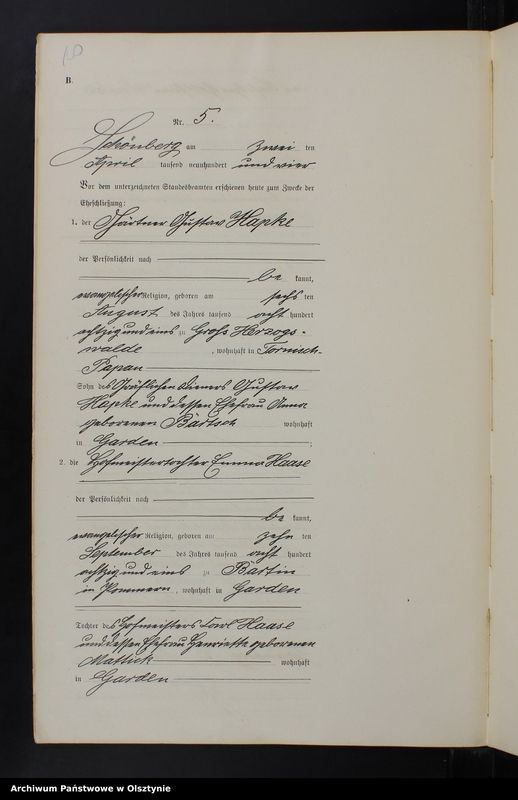 10
B.
Nr. 5.
Schönberg am zwei ten
April tausend neunhundert und vier
Vor dem unterzeichneten Standesbeamten erschienen heute zum Zwecke der
Eheschließung:
1. der Gärtner Gustav Hapke
der Persönlichkeit nach
be kannt,
evangelischer Religion, geboren am sechs ten
August des Jahres tausend acht hundert
achtzig und eins zu Groß Herzogs-
walde, wohnhaft in Tornisch-
Papau
Sohn des Gräflichen Dieners Gustav
Hapke und dessen Ehefrau Anna
geborenen Bartsch wohnhaft
in Garden;
2. die Hofmeistertochter Emma Haase
der Persönlichkeit nach
be kannt,
evangelischer Religion, geboren am zehn ten
September des Jahres tausend acht hundert
achtzig und eins zu Bartin
in Pommern, wohnhaft in Garden
Tochter des Hofmeisters Karl Haase
und dessen Ehefrau Henriette geborenen
wohnhaft
in Garden
Archiwum Państwowe w Olsztynie